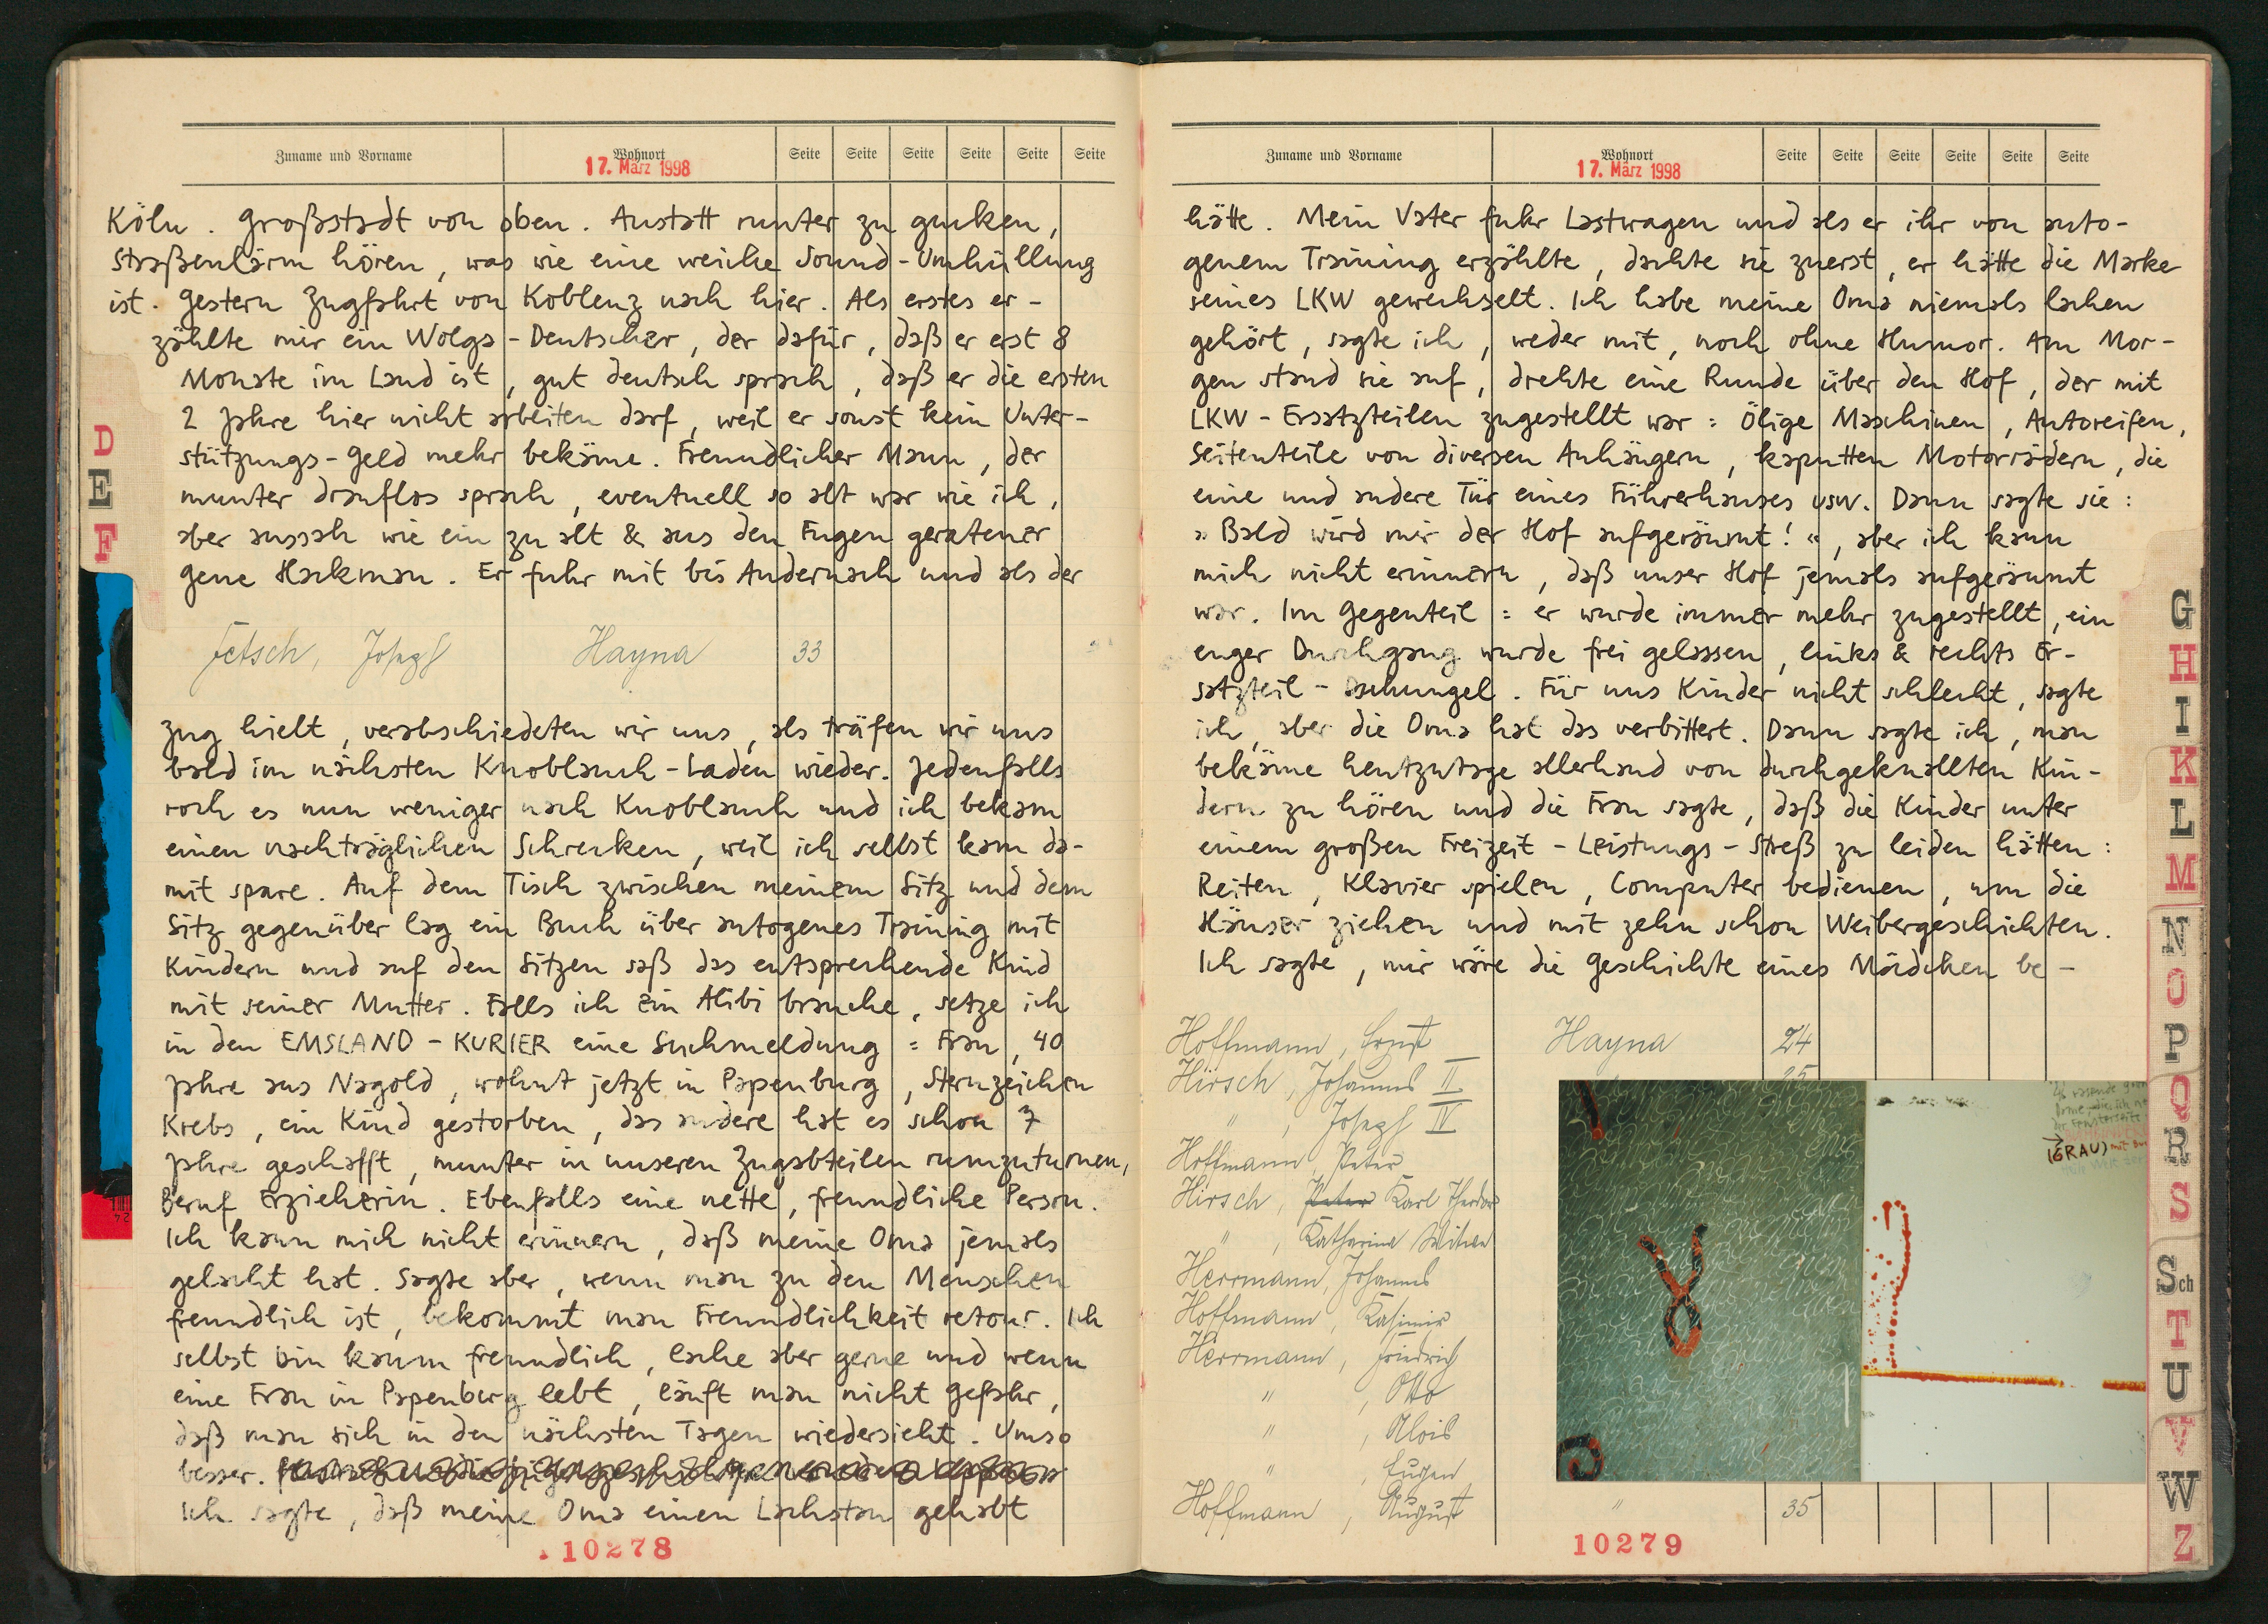 Zuname und Vorname Wohnort Seite Seite Seite Seite Seite Seite
17. März 1998
Köln. Großstadt von oben. Anstatt runter zu gucken,
Straßenlärm hören, was wie eine weiche Sound-Umhüllung
ist. Gestern Zugfahrt von Koblenz nach hier. Als erstes er-
zählte mir ein Wolga-Deutscher, der dafür, daß er erst 8
Monate im Land ist, gut deutsch sprach, daß er die ersten
2 Jahre hier nicht arbeiten darf, weil er sonst kein Unter-
stützungs-Geld mehr bekäme. Freundlicher Mann, der
munter drauflos sprach, eventuell so alt war wie ich,
aber aussah wie ein zu alt & aus den Fugen geratener
Gene Hackman. Er fuhr mit bis Andernach und als der
Fetsch, Joseph Hayna 33
Zug hielt, verabschiedeten wir uns, als träfen wir uns
bald im nächsten Knoblauch-Laden wieder. Jedenfalls
roch es nun weniger nach Knoblauch und ich bekam
einen nachträglichen Schrecken, weil ich selbst kaum da-
mit spare. Auf dem Tisch zwischen meinem Sitz und dem
Sitz gegenüber lag ein Buch über autogenes Training mit
Kindern und auf den Sitzen saß das entsprechende Kind
mit seiner Mutter. Falls ich ein Alibi brauche, setze ich
in den EMSLAND-KURIER eine Suchmeldung: Frau, 40
Jahre aus Nagold, wohnt jetzt in Papenburg, Sternzeichen
Krebs, ein Kind gestorben, das andere hat es schon 7
Jahre geschafft, munter in unseren Zugabteilen rumzuturnen,
Beruf Erzieherin. Ebenfalls eine nette, freundliche Person.
Ich kann mich nicht erinnern, daß meine Oma jemals
gelacht hat. Sagte aber, wenn man zu den Menschen
freundlich ist, bekommt man Freundlichkeit retour. Ich
selbst bin kaum freundlich, lache aber gerne und wenn
eine Frau in Papenburg lebt, läuft man nicht Gefahr,
daß man sich in den nächsten Tagen wiedersieht. Umso
besser.
Ich sagte, daß meine Oma einen Lachstau gehabt
10278
D
E
F
Zuname und Vorname Wohnort Seite Seite Seite Seite Seite Seite
17. März 1998
hätte. Mein Vater fuhr Lastwagen und als er ihr von auto-
genem Training erzählte, dachte sie zuerst, er hätte die Marke
seines LKW gewechselt. Ich habe meine Oma niemals lachen
gehört, sagte ich, weder mit, noch ohne Humor. Am Mor-
gen stand sie auf, drehte eine Runde über den Hof, der mit
LKW-Ersatzteilen zugestellt war: Ölige Maschinen, Autoreifen,
Seitenteile von diversen Anhängern, kaputten Motorrädern, die
eine und andere Tür eines Führerhauses usw. Dann sagte sie:
»Bald wird mir der Hof aufgeräumt!«, aber ich kann
mich nicht erinnern, daß unser Hof jemals aufgeräumt
war. Im Gegenteil: er wurde immer mehr zugestellt, ein
enger Durchgang wurde frei gelassen, links & rechts Er-
satzteil-Dschungel. Für uns Kinder nicht schlecht, sagte
ich, aber die Oma hat das verbittert. Dann sagte ich, man
bekäme heutzutage allerhand von durchgeknallten Kin-
dern zu hören und die Frau sagte, daß die Kinder unter
einem großen Freizeit-Leistungs-Streß zu leiden hätten:
Reiten, Klavier spielen, Computer bedienen, um die
Häuser ziehen und mit zehn schon Weibergeschichten.
Ich sagte, mir wäre die Geschichte eines Mädchen be-
Hoffmann, Ernst Hayna 24
Hirsch, Johannes II 25
" , Joseph IV
Hoffmann, Peter
Hirsch, Peter Karl Theodor
" , Katharina Witwe
Herrmann, Johannes
Hoffmann, Kasimir
Herrmann, Friedrich
" , Otto
" , Alois
" , Eugen
Hoffmann, August " 35
(GRAU)
10279
G
H
I
K
L
M
N
O
P
Q
R
S
Sch
T
U
V
W
Z